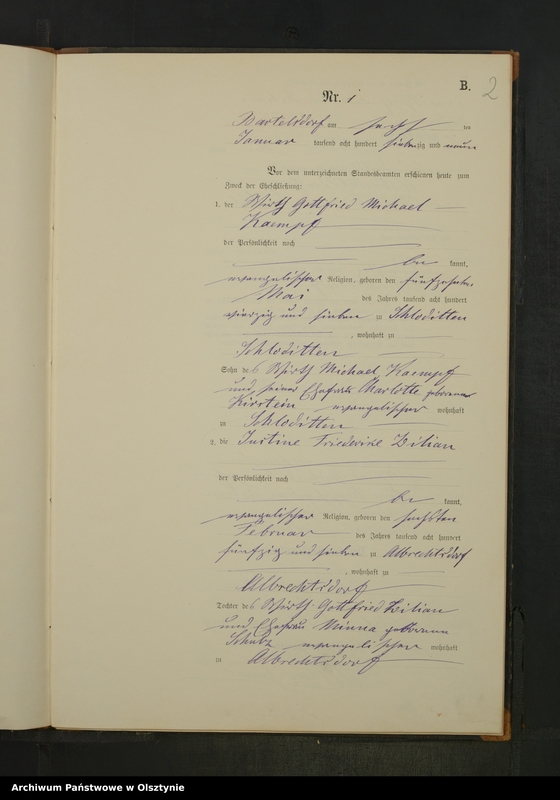 B.
2
Nr. 1
Bartelsdorf am sechs ten
Januar tausend acht hundert siebenzig und neun
Vor dem unterzeichneten Standesbeamten erschienen heute zum
Zweck der Eheschließung:
1. der Wirth Gottfried Michael
Kaempf
der Persönlichkeit nach
be kannt,
evangelischer Religion, geboren den fünfzehnten
Mai des Jahres tausend acht hundert
vierzig und sieben zu Schloditten
, wohnhaft zu
Schloditten
Sohn des Wirth Michael Kaempf
und seiner Ehefrau Charlotte geborenen
Kirstein evangelischer wohnhaft
zu Schloditten
2. die Justine Friederike Zilian
der Persönlichkeit nach
be kannt,
evangelischer Religion, geboren den sechsten
Februar des Jahres tausend acht hundert
fünfzig und sieben zu Albrechtsdorf
, wohnhaft zu
Albrechtsdorf
Tochter des Wirth Gottfried Zilian
und Ehefrau Minna geborenen
Schulz evangelischer wohnhaft
zu Albrechtsdorf
Archiwum Państwowe w Olsztynie